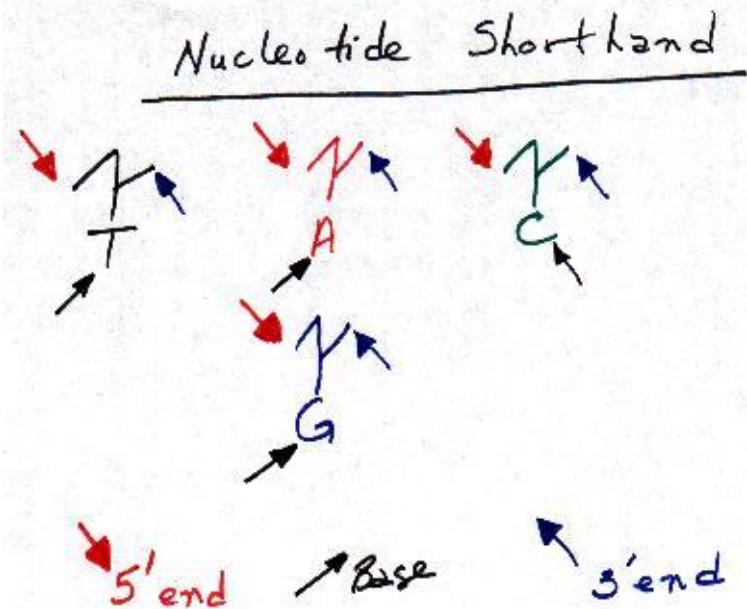 Nucleotide Shorthand
T A C
G
5' end Base 3' end